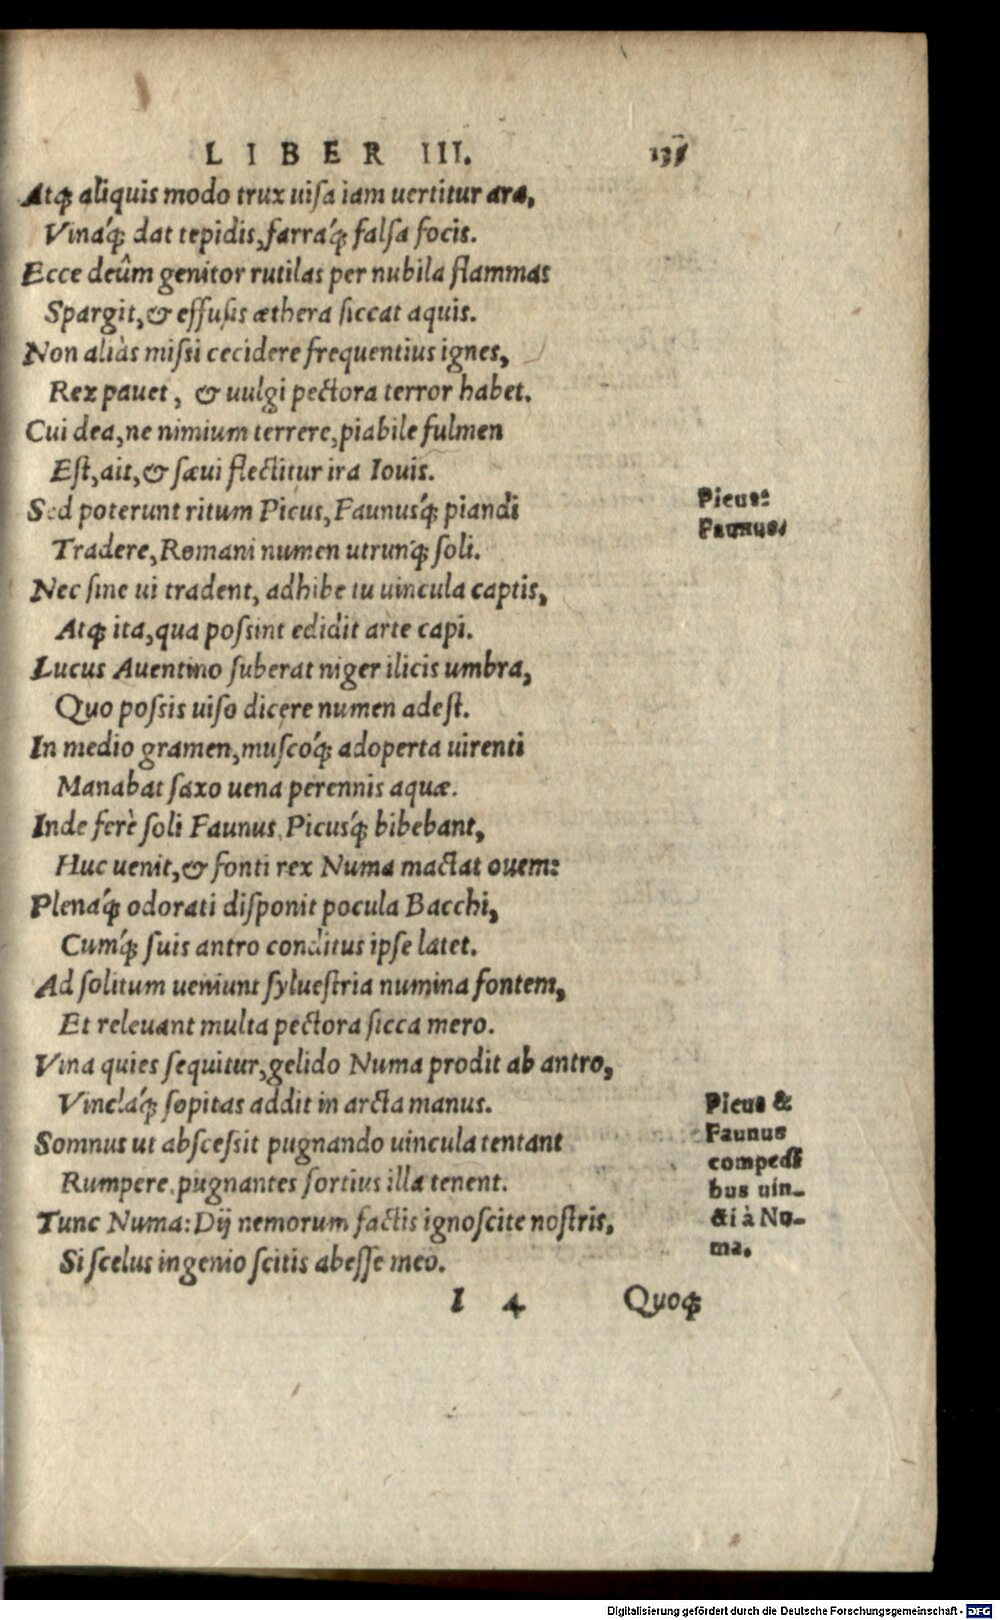 LIBER III.
Atq; aliquis modo trux uisa iam uertitur ara,
Vináq; dat tepidis, farráq; falsa focis.
Ecce deûm genitor rutilas per nubila flammas
Spargit, & effusis æthera siccat aquis.
Non aliàs missi cecidere frequentius ignes,
Rex pauet, & uulgi pectora terror habet.
Cui dea, ne nimium terrere, piabile fulmen
Est, ait, & sæui flectitur ira Iouis.
Sed poterunt ritum Picus, Faunusq́; piandi
Tradere, Romani numen utrunq; soli.
Nec sine ui tradent, adhibe tu uincula captis,
Atq; ita, qua possint edidit arte capi.
Lucus Auentino suberat niger ilicis umbra,
Quo possis uiso dicere numen adest.
In medio gramen, muscóq; adoperta uirenti
Manabat saxo uena perennis aquæ.
Inde ferè soli Faunus, Picusq́; bibebant,
Huc uenit, & fonti rex Numa mactat ouem:
Plenáq; odorati disponit pocula Bacchi,
Cumq́; suis antro conditus ipse latet.
Ad solitum ueniunt syluestria numina fontem,
Et releuant multa pectora sicca mero.
Vina quies sequitur, gelido Numa prodit ab antro,
Vincláq; sopitas addit in arcta manus.
Somnus ut abscessit pugnando uincula tentant
Rumpere, pugnantes fortius illa tenent.
Tunc Numa: Dij nemorum factis ignoscite nostris,
Si scelus ingenio scitis abesse meo.
I 4 Quoq;
Picus:
Faunus.
Picus &
Faunus
compedi
bus uin-
cti à Nu-
ma.
Digitalisierung gefördert durch die Deutsche Forschungsgemeinschaft - DFG